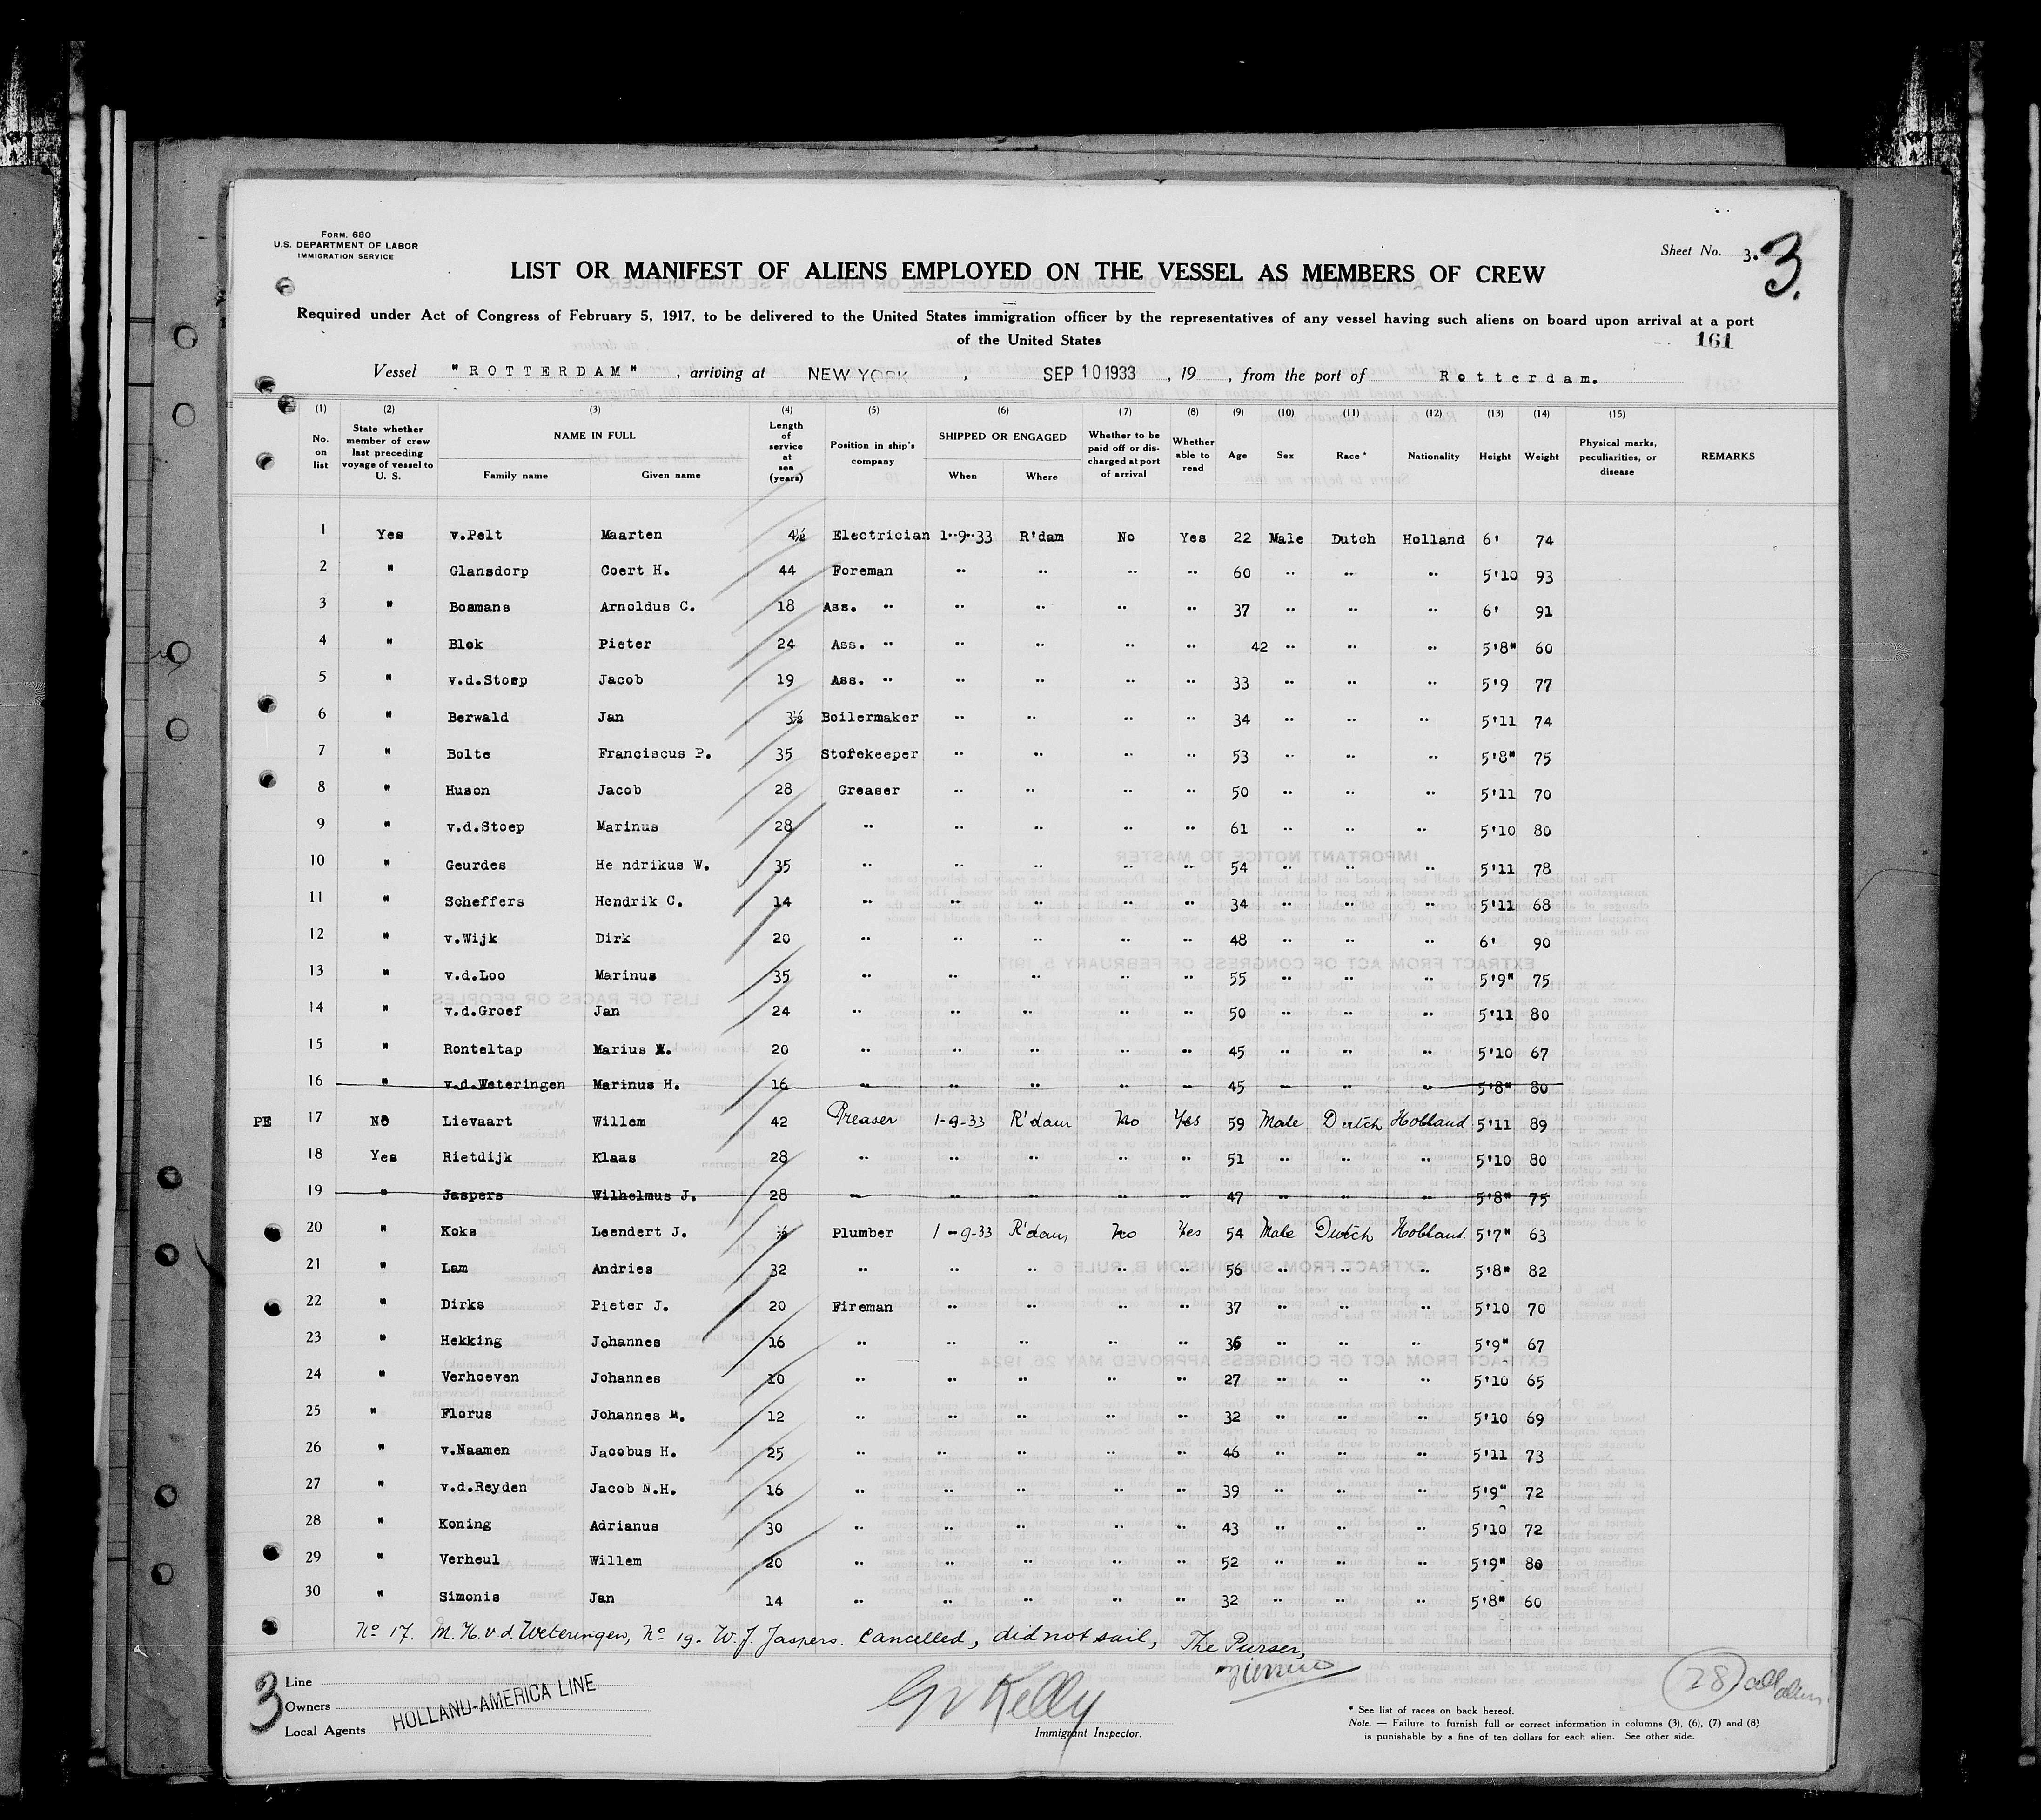 FORM. 680
U.S. DEPARTMENT OF LABOR
IMMIGRATION SERVICE
Sheet No. 3. 3.
LIST OR MANIFEST OF ALIENS EMPLOYED ON THE VESSEL AS MEMBERS OF CREW
Required under Act of Congress of February 5, 1917, to be delivered to the United States immigration officer by the representatives of any vessel having such aliens on board upon arrival at a port
of the United States
161
Vessel "ROTTERDAM", arriving at NEW YORK, SEP 10 1933, 19 , from the port of Rotterdam.
(1) (2) (3) (4) (5) (6) (7) (8) (9) (10) (11) (12) (13) (14) (15)
No. on list | State whether member of crew last preceding voyage of vessel to U. S. | NAME IN FULL Family name Given name | Length of service at sea (years) | Position in ship's company | SHIPPED OR ENGAGED When Where | Whether to be paid off or discharged at port of arrival | Whether able to read | Age | Sex | Race * | Nationality | Height | Weight | Physical marks, peculiarities, or disease | REMARKS
1 Yes v.Pelt Maarten 4½ Electrician 1-9-33 R'dam No Yes 22 Male Dutch Holland 6' 74
2 " Glansdorp Coert H. 44 Foreman " " " " 60 " " " 5'10 93
3 " Bosmans Arnoldus C. 18 Ass. " " " " " 37 " " " 6' 91
4 " Blok Pieter 24 Ass. " " " " " 42 " " " 5'8" 60
5 " v.d.Stoep Jacob 19 Ass. " " " " " 33 " " " 5'9 77
6 " Berwald Jan 3½ Boilermaker " " " " 34 " " " 5'11 74
7 " Bolte Franciscus P. 35 Storekeeper " " " " 53 " " " 5'8" 75
8 " Huson Jacob 28 Greaser " " " " 50 " " " 5'11 70
9 " v.d.Stoep Marinus 28 " " " " " 61 " " " 5'10 80
10 " Geurdes He ndrikus W. 35 " " " " " 54 " " " 5'11 78
11 " Scheffers Hendrik C. 14 " " " " " 34 " " " 5'11 68
12 " v.Wijk Dirk 20 " " " " " 48 " " " 6' 90
13 " v.d.Loo Marinus 35 " " " " " 55 " " " 5'9" 75
14 " v.d.Groef Jan 24 " " " " " 50 " " " 5'11 80
15 " Ronteltap Marius 20 " " " " " 45 " " " 5'10 67
16 " v.d.Weteringen Marinus H. 16 " " " " " 45 " " " 5'8" 80
PE 17 No Lievaart Willem 42 Greaser 1-9-33 R'dam No Yes 59 Male Dutch Holland 5'11 89
18 Yes Rietdijk Klaas 28 " " " " " 51 " " " 5'10 80
19 " Jaspers Wilhelmus J. 28 " " " " " 47 " " " 5'8" 75
20 " Koks Leendert J. ½ Plumber 1-9-33 R'dam No Yes 54 Male Dutch Holland. 5'7" 63
21 " Lam Andries 32 " " " " " 56 " " " 5'8" 82
22 " Dirks Pieter J. 20 Fireman " " " " 37 " " " 5'10 70
23 " Hekking Johannes 16 " " " " " 36 " " " 5'9" 67
24 " Verhoeven Johannes 10 " " " " " 27 " " " 5'10 65
25 " Florus Johannes M. 12 " " " " " 32 " " " 5'10 69
26 " v.Naamen Jacobus H. 25 " " " " " 46 " " " 5'11 73
27 " v.d.Reyden Jacob N.H. 16 " " " " " 39 " " " 5'9" 72
28 " Koning Adrianus 30 " " " " " 43 " " " 5'10 72
29 " Verheul Willem 20 " " " " " 52 " " " 5'9" 80
30 " Simonis Jan 14 " " " " " 32 " " " 5'8" 60
No 17. M. H. v d. Weteringen, No 19- W. J. Jaspers. Cancelled, did not sail, The Purser,
3
Line
Owners
Local Agents
HOLLAND-AMERICA LINE
Kelly
Immigrant Inspector.
28
* See list of races on back hereof.
Note. — Failure to furnish full or correct information in columns (3), (6), (7) and (8)
is punishable by a fine of ten dollars for each alien. See other side.